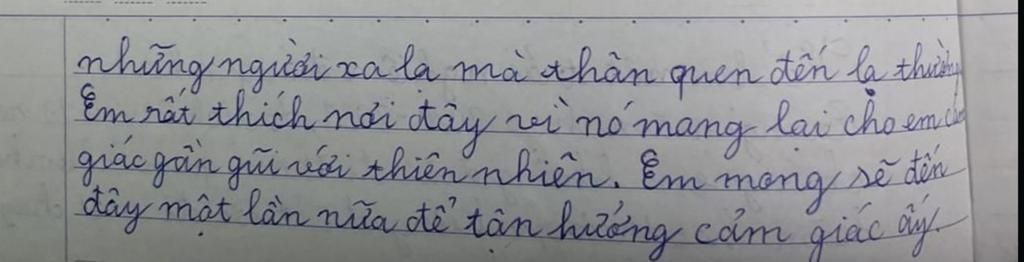 những người xa lạ mà thân quen đến lạ thường
Em rất thích nơi đây vì nó mang lại cho em cảm
giác gần gũi với thiên nhiên. Em mong sẽ đến
đây một lần nữa để tận hưởng cảm giác ấy.